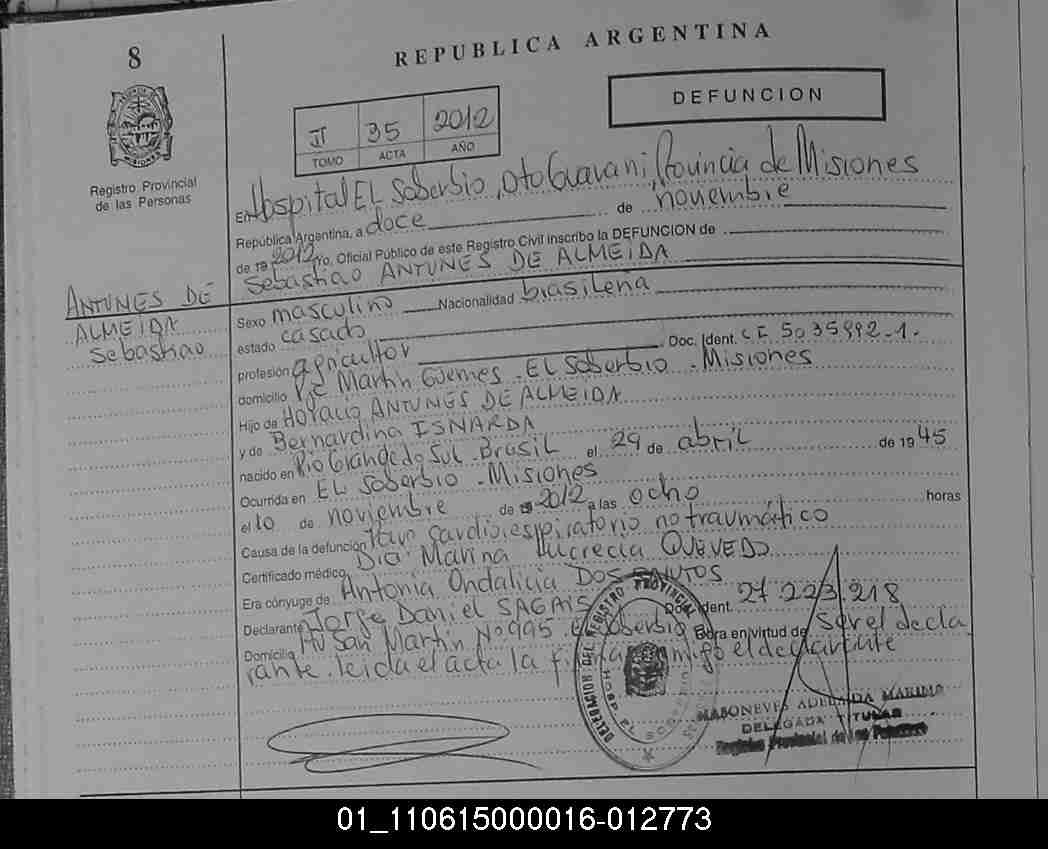 8
REPUBLICA ARGENTINA
DEFUNCION
II 35 2012
TOMO ACTA AÑO
Registro Provincial
de las Personas
En Hospital EL Soberbio, Dto Guarani, Provincia de Misiones
República Argentina, a doce de noviembre
de 19 2012 Yo, Oficial Público de este Registro Civil inscribo la DEFUNCION de
Sebastiao ANTUNES DE ALMEIDA
ANTUNES DE
ALMEIDA
Sebastiao
Sexo masculino Nacionalidad brasileña
estado casado
profesión agricultor Doc. Ident. C I 5035992-1.
domicilio Martin Güemes - EL Soberbio - Misiones
Hijo de Horacio ANTUNES DE ALMEIDA
y de Bernardina ISNARDA
nacido en Rio Grande do Sul - Brasil el 29 de abril de 19 45
Ocurrida en EL Soberbio - Misiones
el 10 de noviembre de 19 2012 a las ocho horas
Causa de la defunción Paro cardiorespiratorio no traumático
Certificado médico Dra Marina Lucrecia QUEVEDO
Era cónyuge de Antonia Ondalicia DOS SANTOS
Declarante Jorge Daniel Doc. Ident. 27 223 218
Domicilio AV San Martin Nº 995 el Soberbio Obra en virtud de Ser el decla
rante. leida el acta la firma conmigo el declarante
DELEGACION DEL REGISTRO PROVINCIAL
ADELAIDA MARINO
DELEGADA TITULAR
Registro Provincial de las Personas
01_110615000016-012773